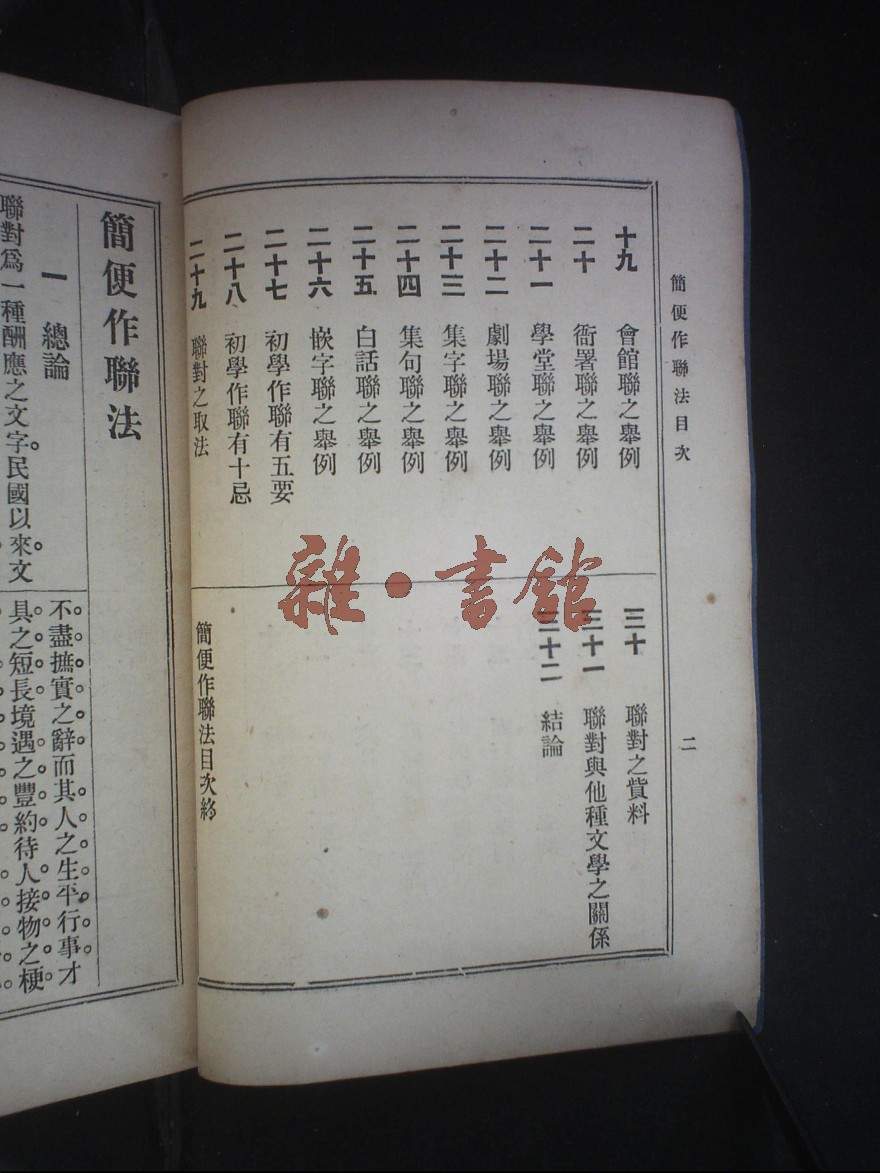 簡便作聯法目次
二
十九 會館聯之舉例
二十 衙署聯之舉例
二十一 學堂聯之舉例
二十二 劇場聯之舉例
二十三 集字聯之舉例
二十四 集句聯之舉例
二十五 白話聯之舉例
二十六 嵌字聯之舉例
二十七 初學作聯有五要
二十八 初學作聯有十忌
二十九 聯對之取法
三十 聯對之貲料
三十一 聯對與他種文學之關係
三十二 結論
簡便作聯法目次終
雜·書館
簡便作聯法
一 總論
聯對爲一種酬應之文字。民國以來。文
不盡摭實之辭。而其人之生平行事。才
具之短長。境遇之豐約。待人接物之梗